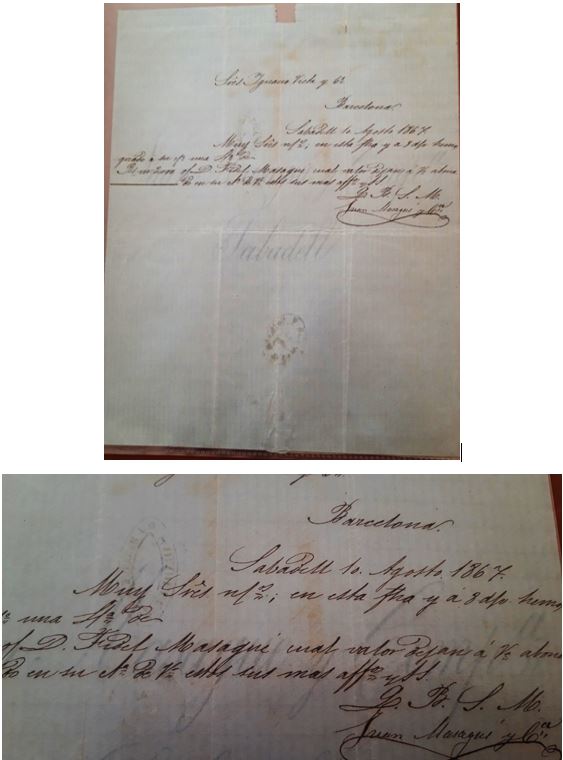 Sres Ignacio Vieta y Ca
Barcelona
Sabadell 10 Agosto 1867.
Muy Sres n/s, en esta fha y a 8 d/fo hemos
girado a su c/ una Sa de
of D. Fidel Masagué cual valor dejans á Vs abona
do en su Na de Vs estos sus mas affos y SS.
Q. B. S. M.
Juan Masagué y Cia
Sabadell
Barcelona.
Sabadell 10 Agosto 1867.
Muy Sres n/s; en esta fha y a 8 d/fo hemo
una
of D. Fidel Masagué cual valor dejans á Vs abon
do en su Na de Vs estos sus mas affos y SS.
Q. B. S. M.
Juan Masagué y Cia